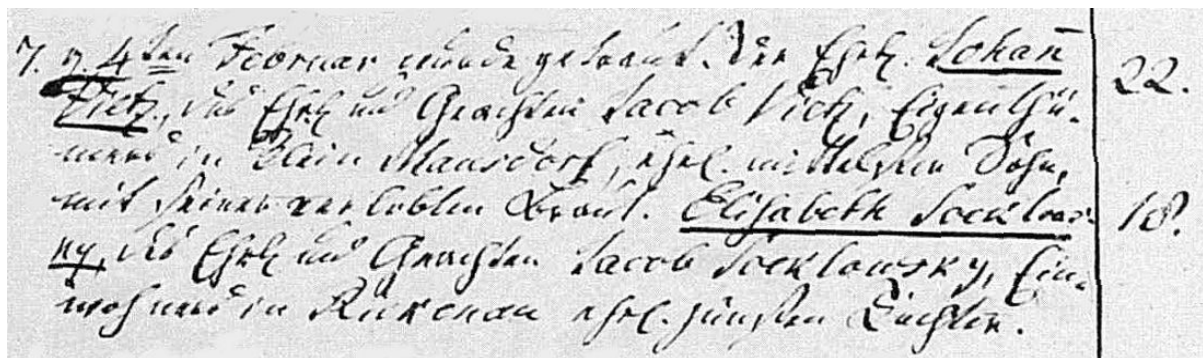 7. d. 4ten Februar wurde getraut. Der Ehrb. Johañ
Vick, des Ehrb und Geachten Jacob Vick, Eigenthü-
mers in Klein Mausdorf, ehel. mittelster Sohn,
mit seiner verlobten Braut. Elisabeth Socklows-
ky, des Ehrb und Geachten Jacob Socklowsky, Ein-
wohners in Rückenau ehel. jüngsten Tochter.
22.
18.